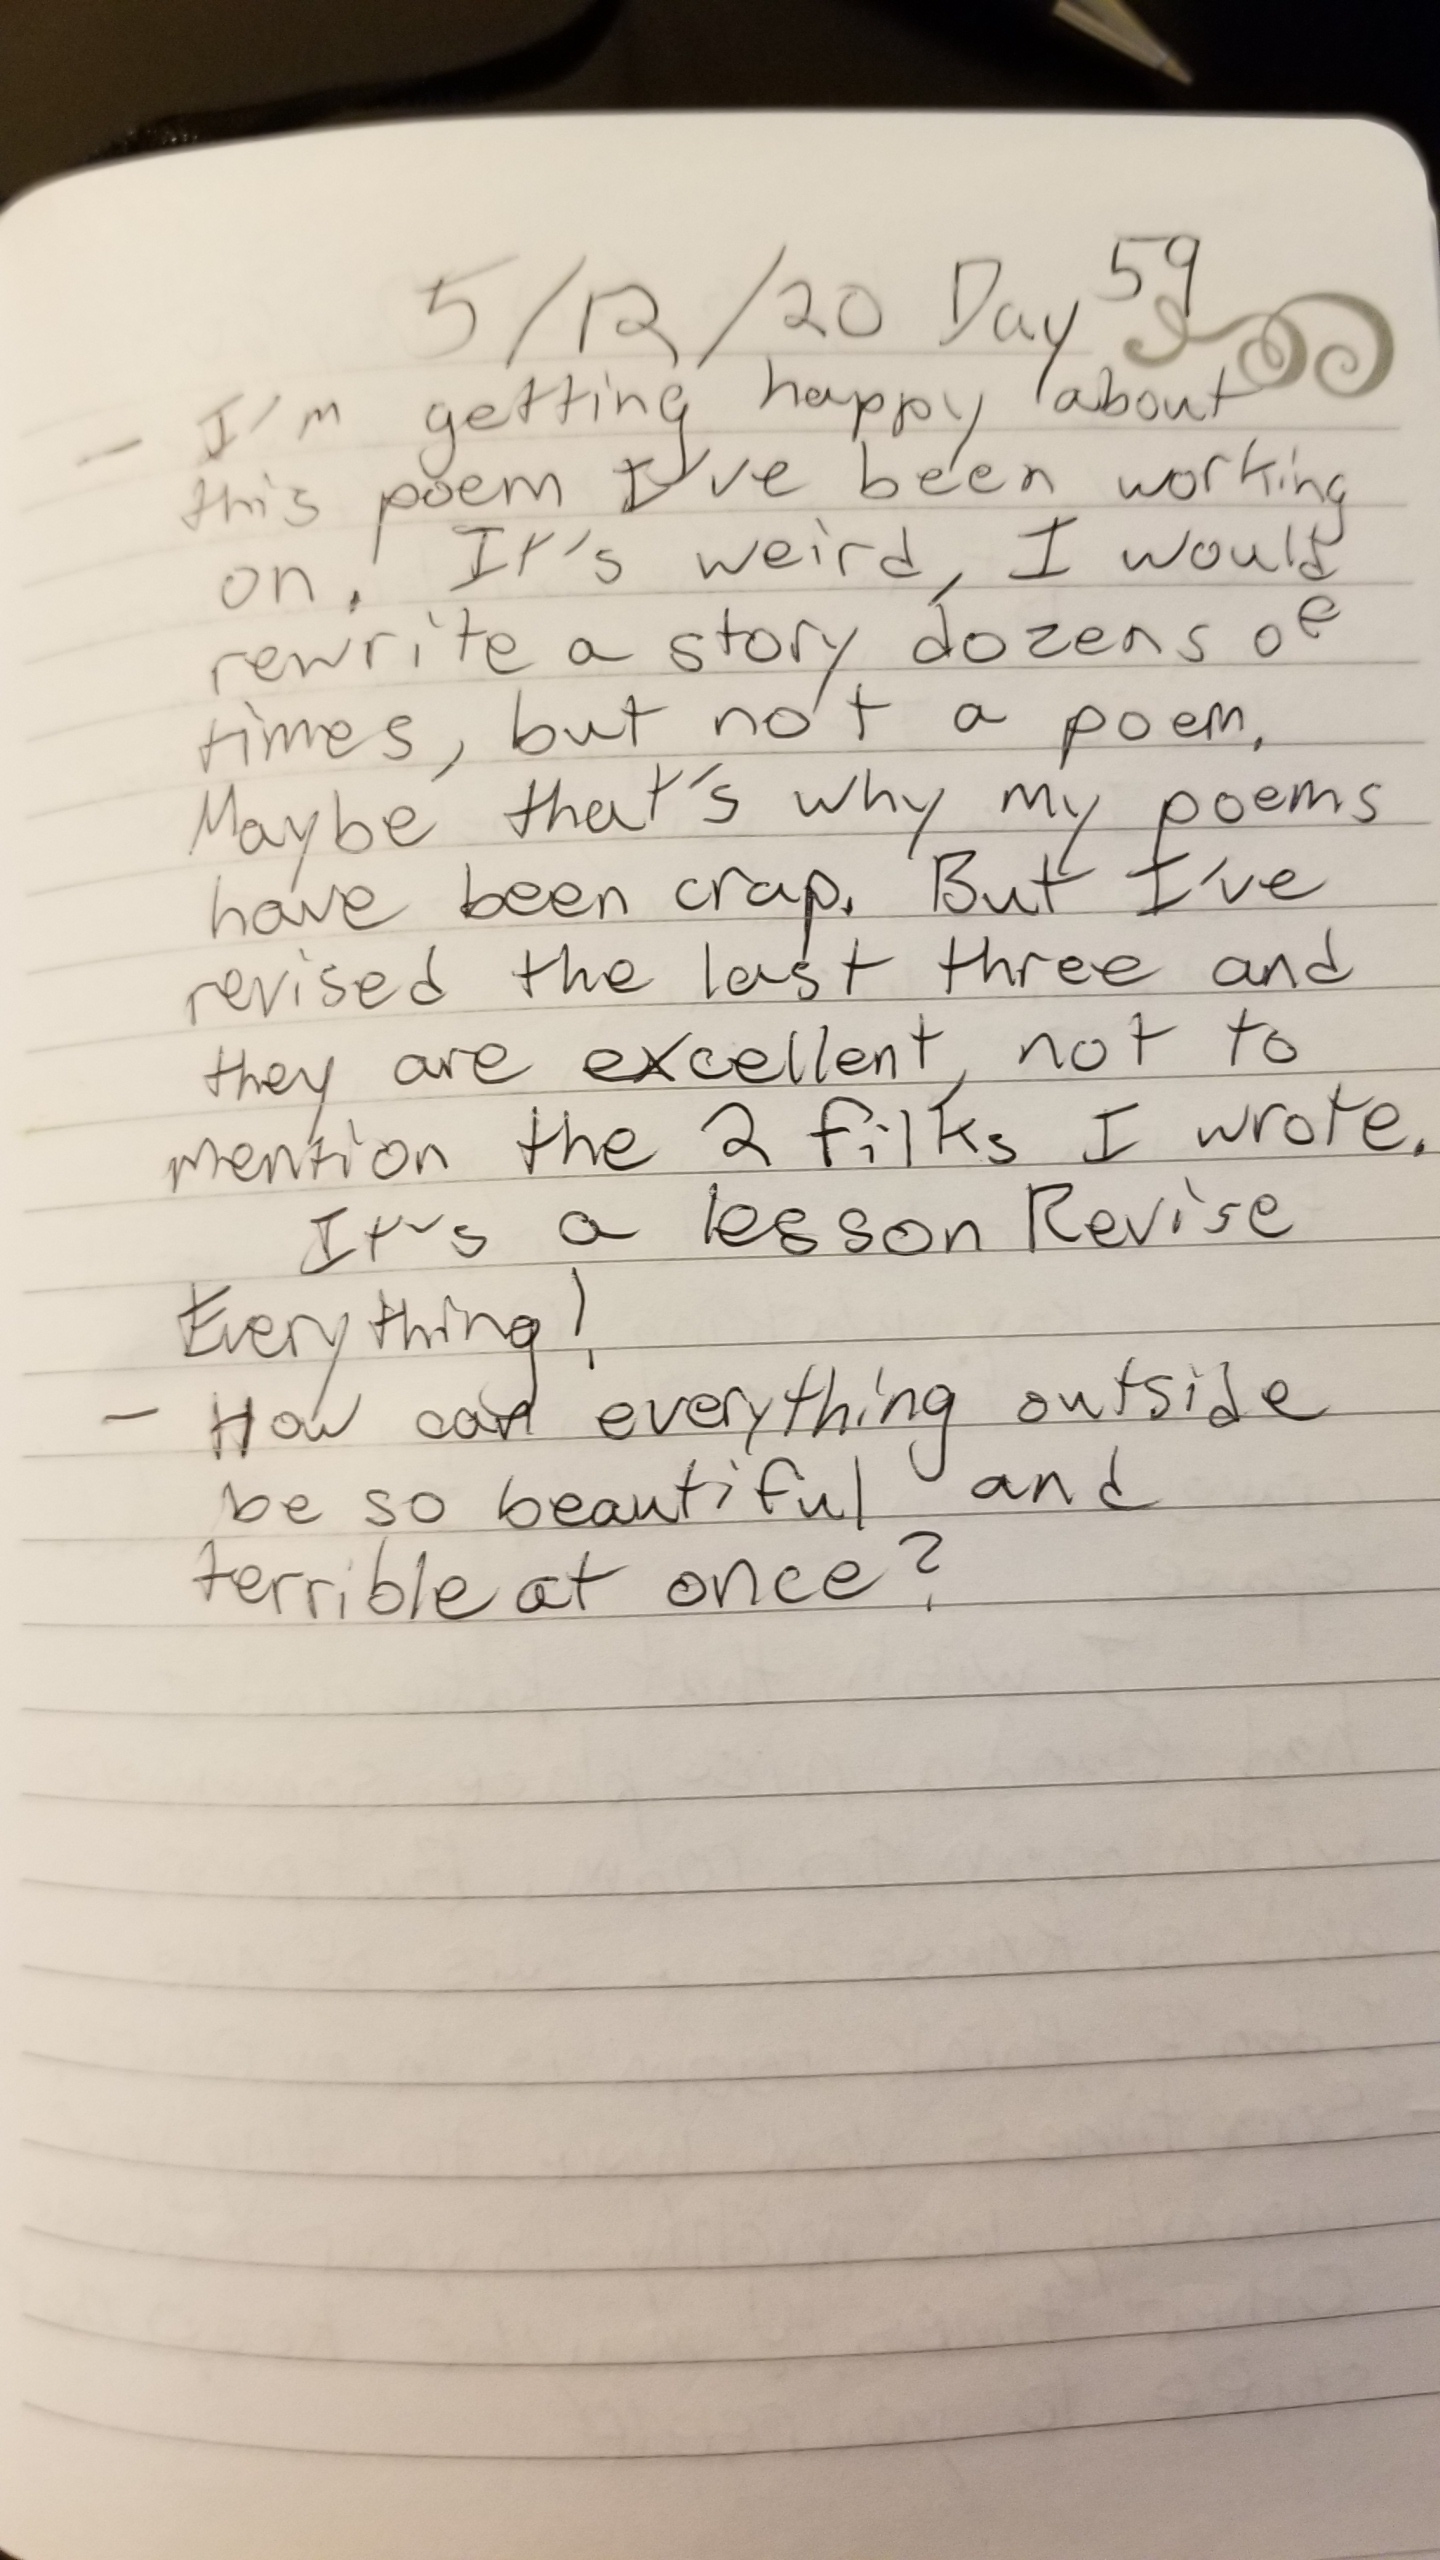 5/12/20 Day 59
- I'm getting happy about
this poem I've been working
on. It's weird, I would
rewrite a story dozens of
times, but not a poem.
Maybe that's why my poems
have been crap. But I've
revised the last three and
they are excellent, not to
mention the 2 filks I wrote.
It's a lesson Revise
Everything!
- How can everything outside
be so beautiful and
terrible at once?